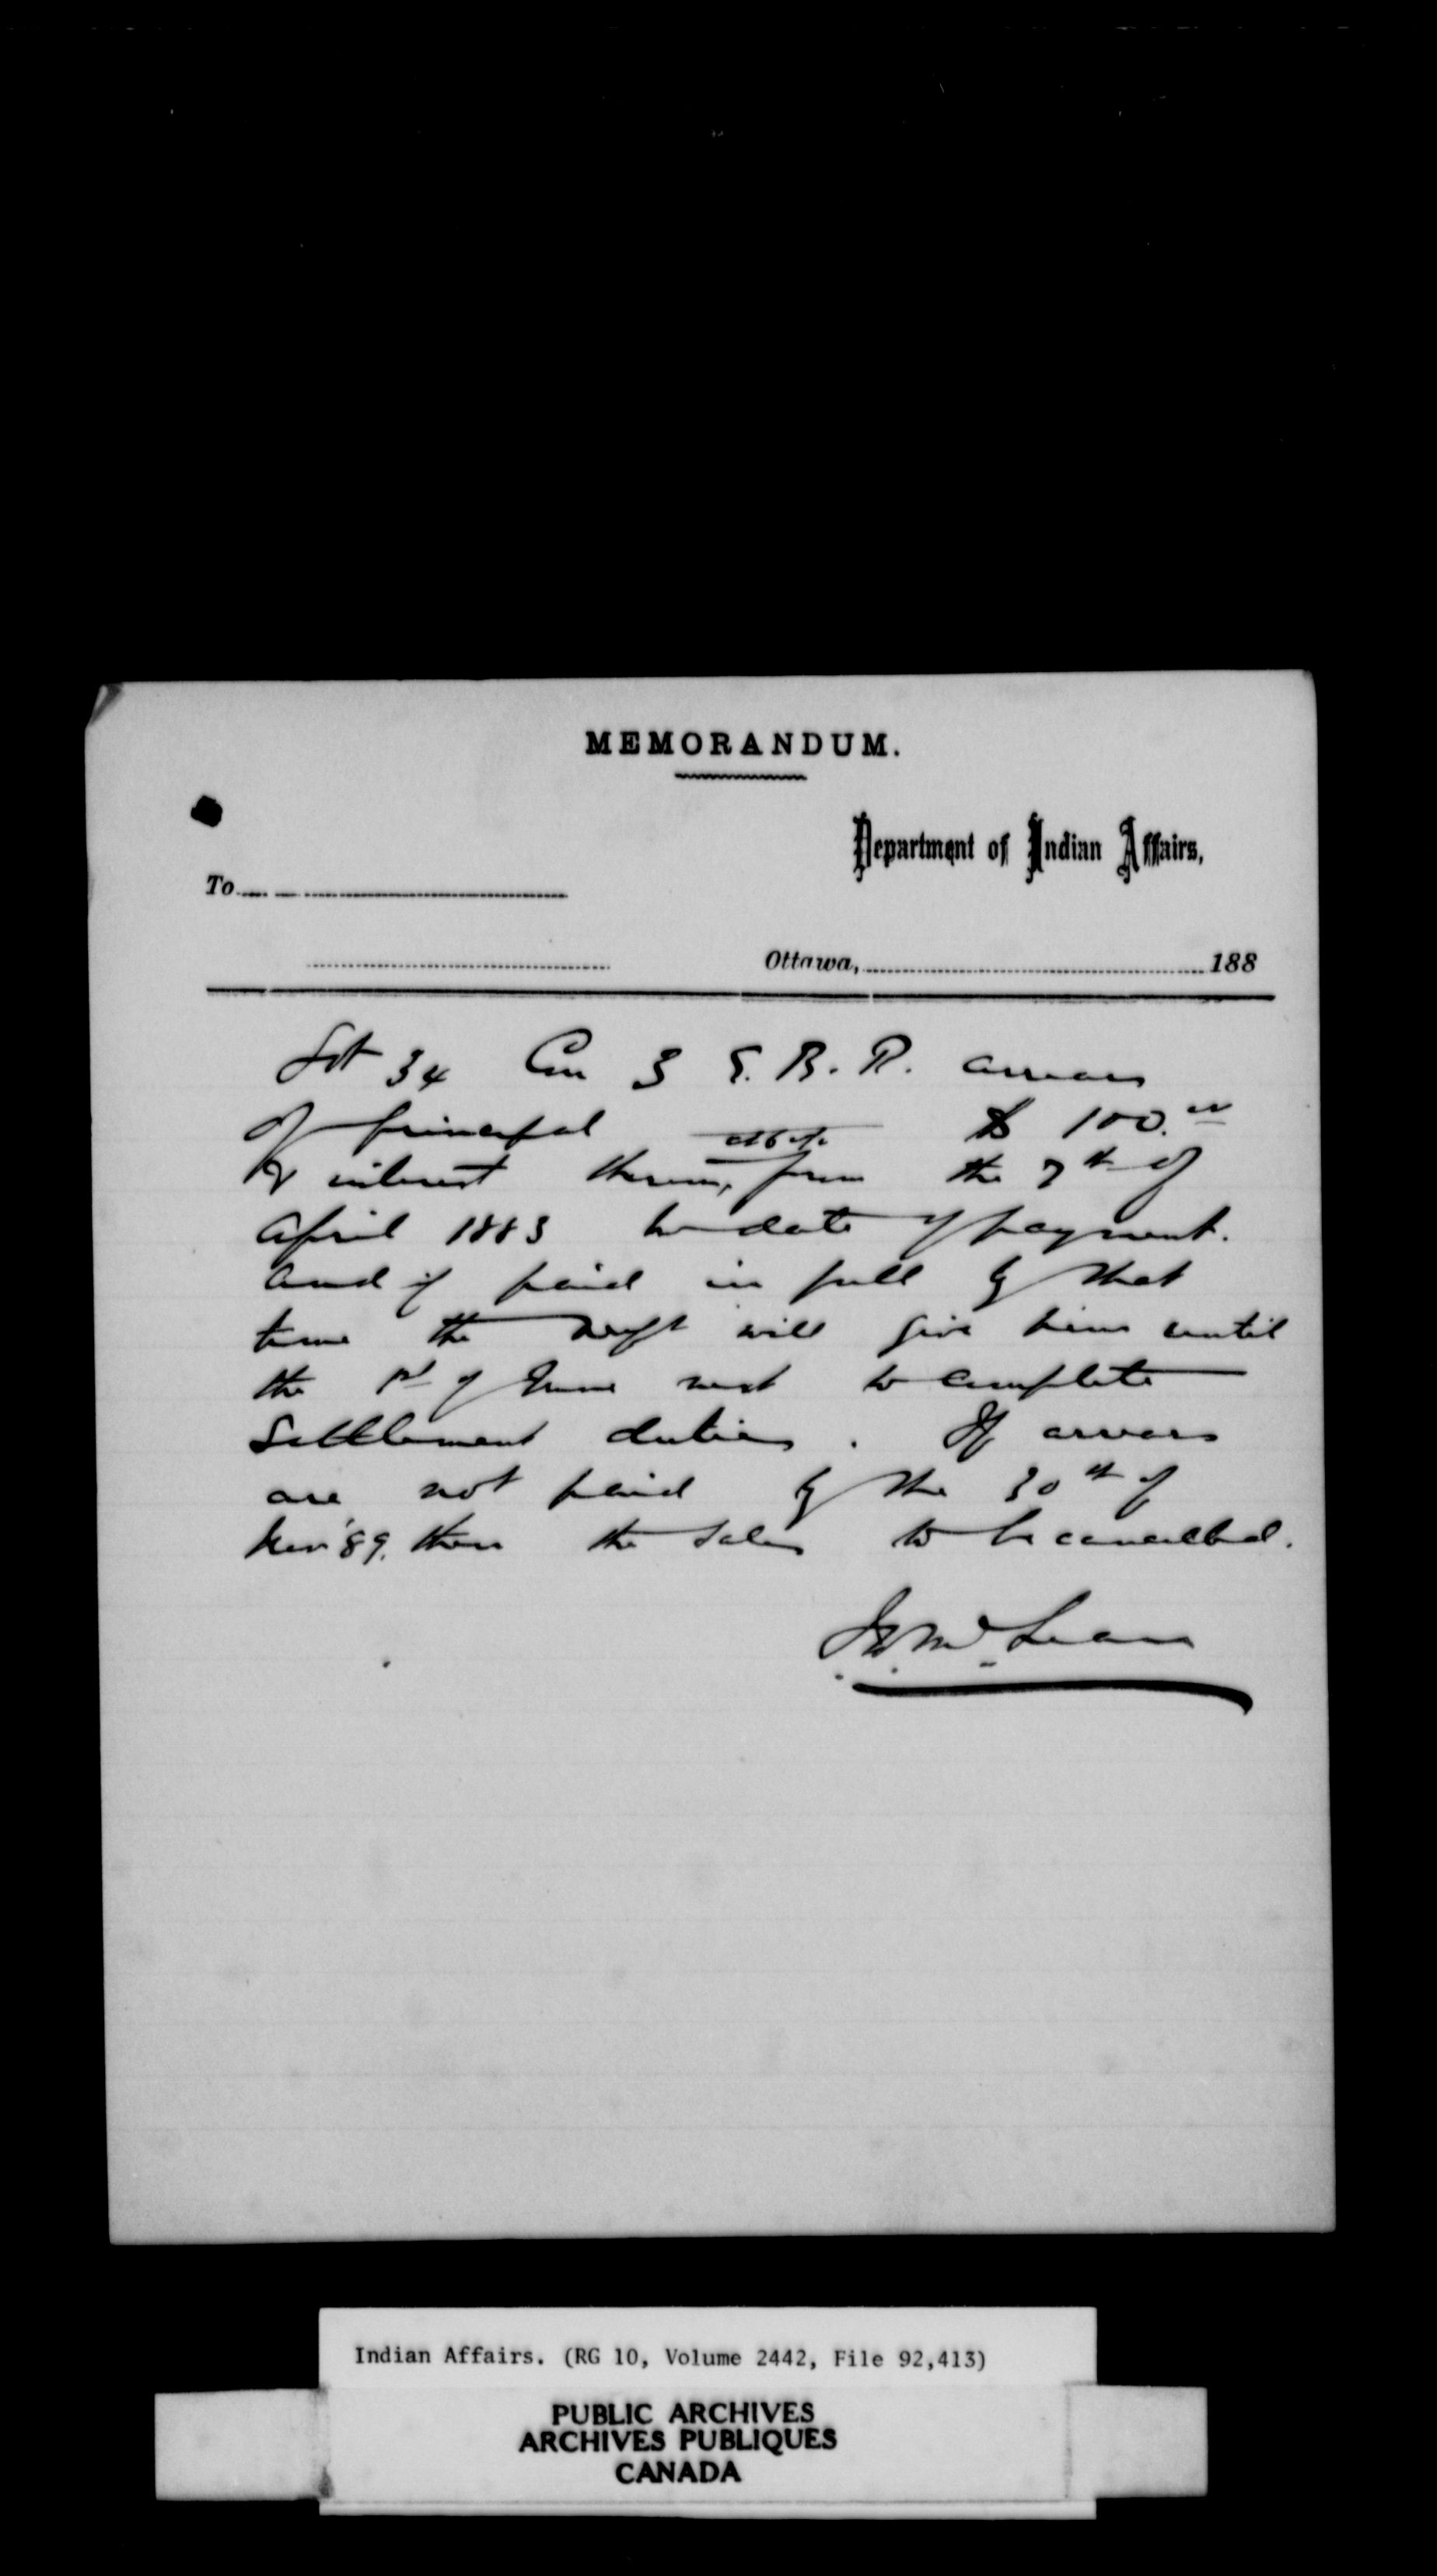 MEMORANDUM.
Department of Indian Affairs,
To
Ottawa, 188
Lot 34 Con 3 E. B. R. arrears
of principal $ 100.00
& interest thereon, at 6 % from the 7th of
April 1883 to date of payment.
and if paid in full by that
time the Dept will give him until
the 1st of June next to complete
Settlement duties. If arrears
are not paid by the 30th of
Nov '89. then the sales to be cancelled.
J. D. McLean
Indian Affairs. (RG 10, Volume 2442, File 92,413)
PUBLIC ARCHIVES
ARCHIVES PUBLIQUES
CANADA